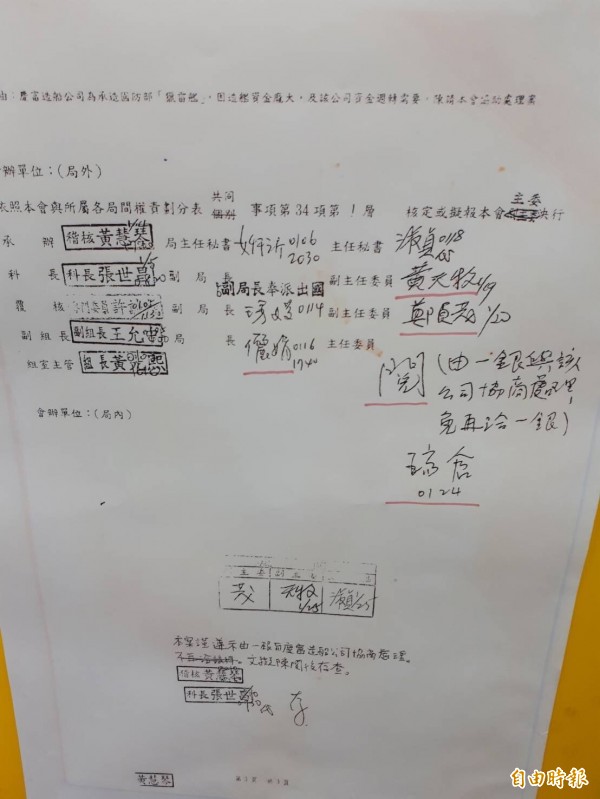 由：慶富造船公司為承造國防部「獵雷艦」，因造艦資金龐大，及該公司資金週轉需要，陳請本會協助處理案
會辦單位：(局外)
依照本會與所屬各局間權責劃分表 共同 事項第34項第1層 核定或擬報本會 主委 決行
承辦 稽核 黃慧琴 局主任秘書 0106 2030 主任秘書 0118
科長 科長 張世 副局長 副局長奉派出國 副主任委員 黃天牧 1/19
覆核 副局長 0114 副主任委員 鄭貞茂 1/20
副組長 副組長 王允中 局長 0116 1740 主任委員
組室主管 組長 黃
閱 (由一銀與該
公司協商處理，
免再洽一銀)
0124
會辦單位：(局內)
主委 副主委
茂 天牧 1/25
本案謹遵示由一銀與慶富造船公司協商處理。
文擬陳閱後存查。
稽核 黃慧琴
科長 張世 代
存
黃慧琴
自由時報